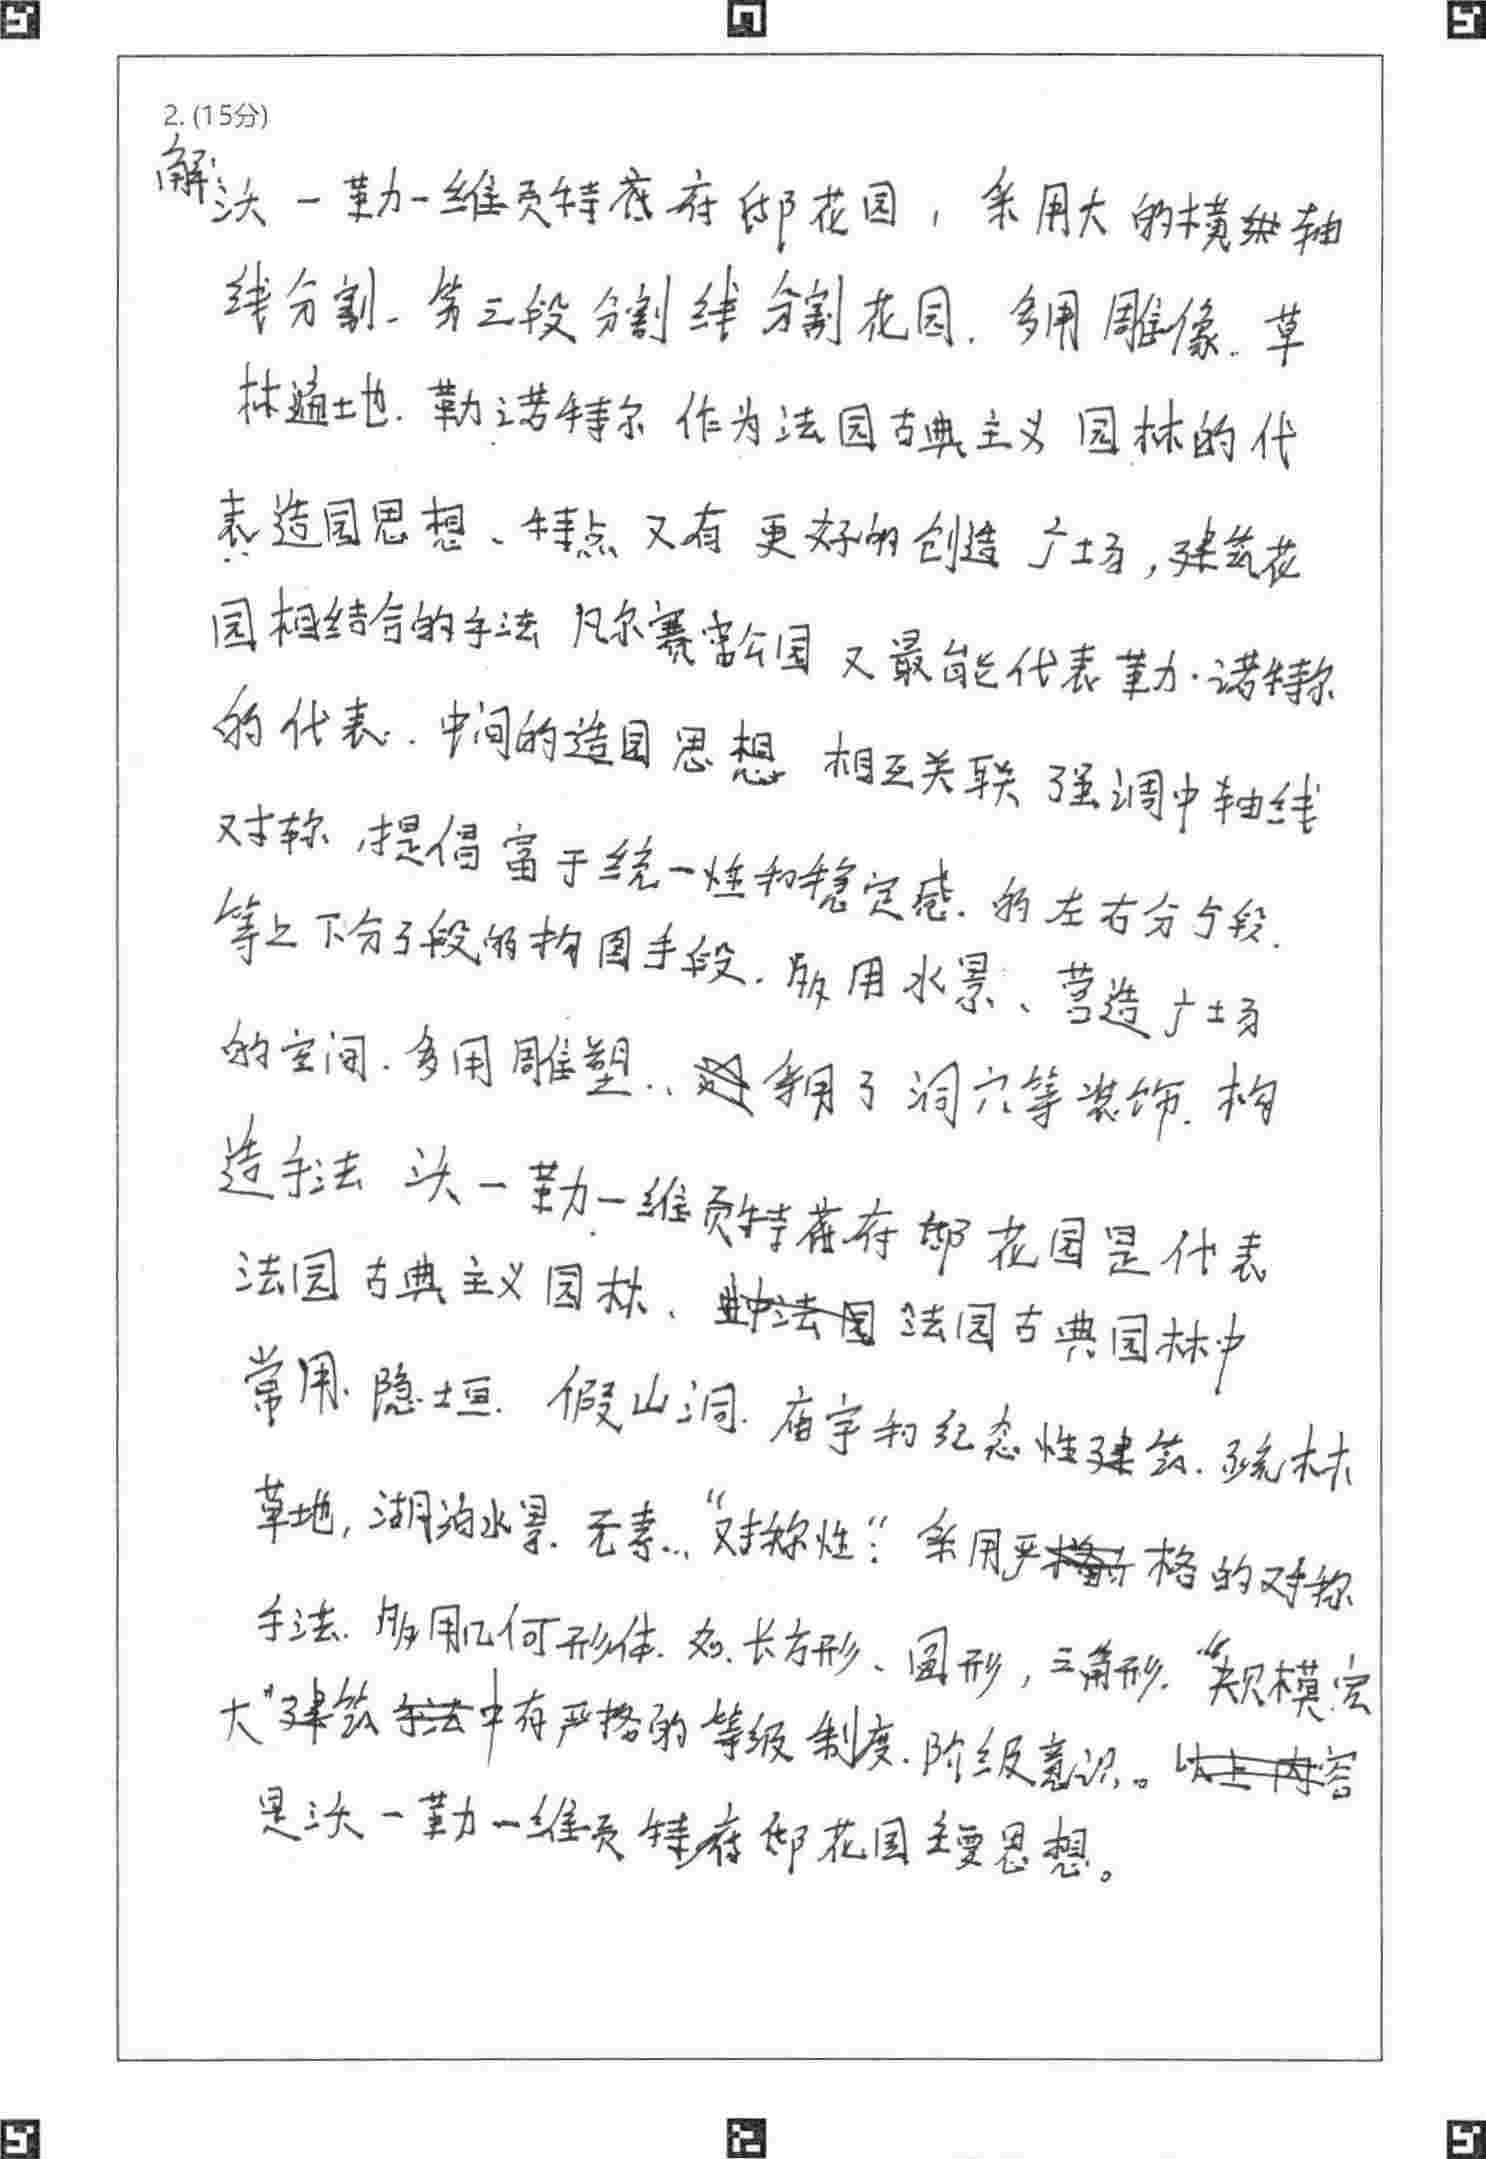 2. (15分)
解:沃一勒一维贡特府邸花园，采用大的横纵轴
线分割. 第三段分割线分割花园. 多用雕像. 草
林遍地. 勒诺特尔作为法国古典主义园林的代
表造园思想、特点又有更好的创造广场，建筑花
园相结合的手法 凡尔赛宫公园又最能代表勒·诺特尔
的代表. 中间的造园思想 相互关联 强调中轴线
对称，提倡富于统一性和稳定感. 的左右分段.
等上下分了段的构图手段. 多用水景、营造广场
的空间. 多用雕塑.、采用了洞穴等装饰. 构
造手法 沃一勒一维贡特府邸花园是代表
法国古典主义园林、法国古典园林中
常用. 隐垣. 假山洞. 庙宇和纪念性建筑. 疏林
草地，湖泊水景. 元素.. “对称性”: 采用严格的对称
手法. 多用几何形体. 如. 长方形、圆形，三角形. “规模宏
大”建筑中有严格的等级制度. 阶级意识。
是沃一勒一维贡特府邸花园主要思想。